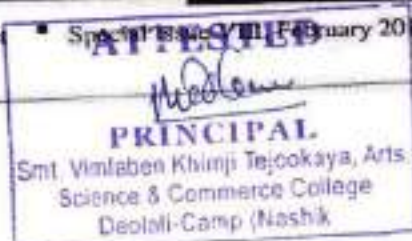 Special Issue VIII, February 20
ATTESTED
PRINCIPAL
Smt. Vimlaben Khimji Tejookaya, Arts
Science & Commerce College
Deolali-Camp (Nashik